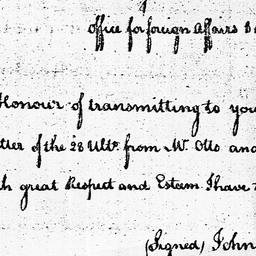 Office for foreign Affairs
Honour of transmitting to you
tter of the 28 Ulto. from Mr. Otto and
th great Respect and Esteem I have
(Signed) John